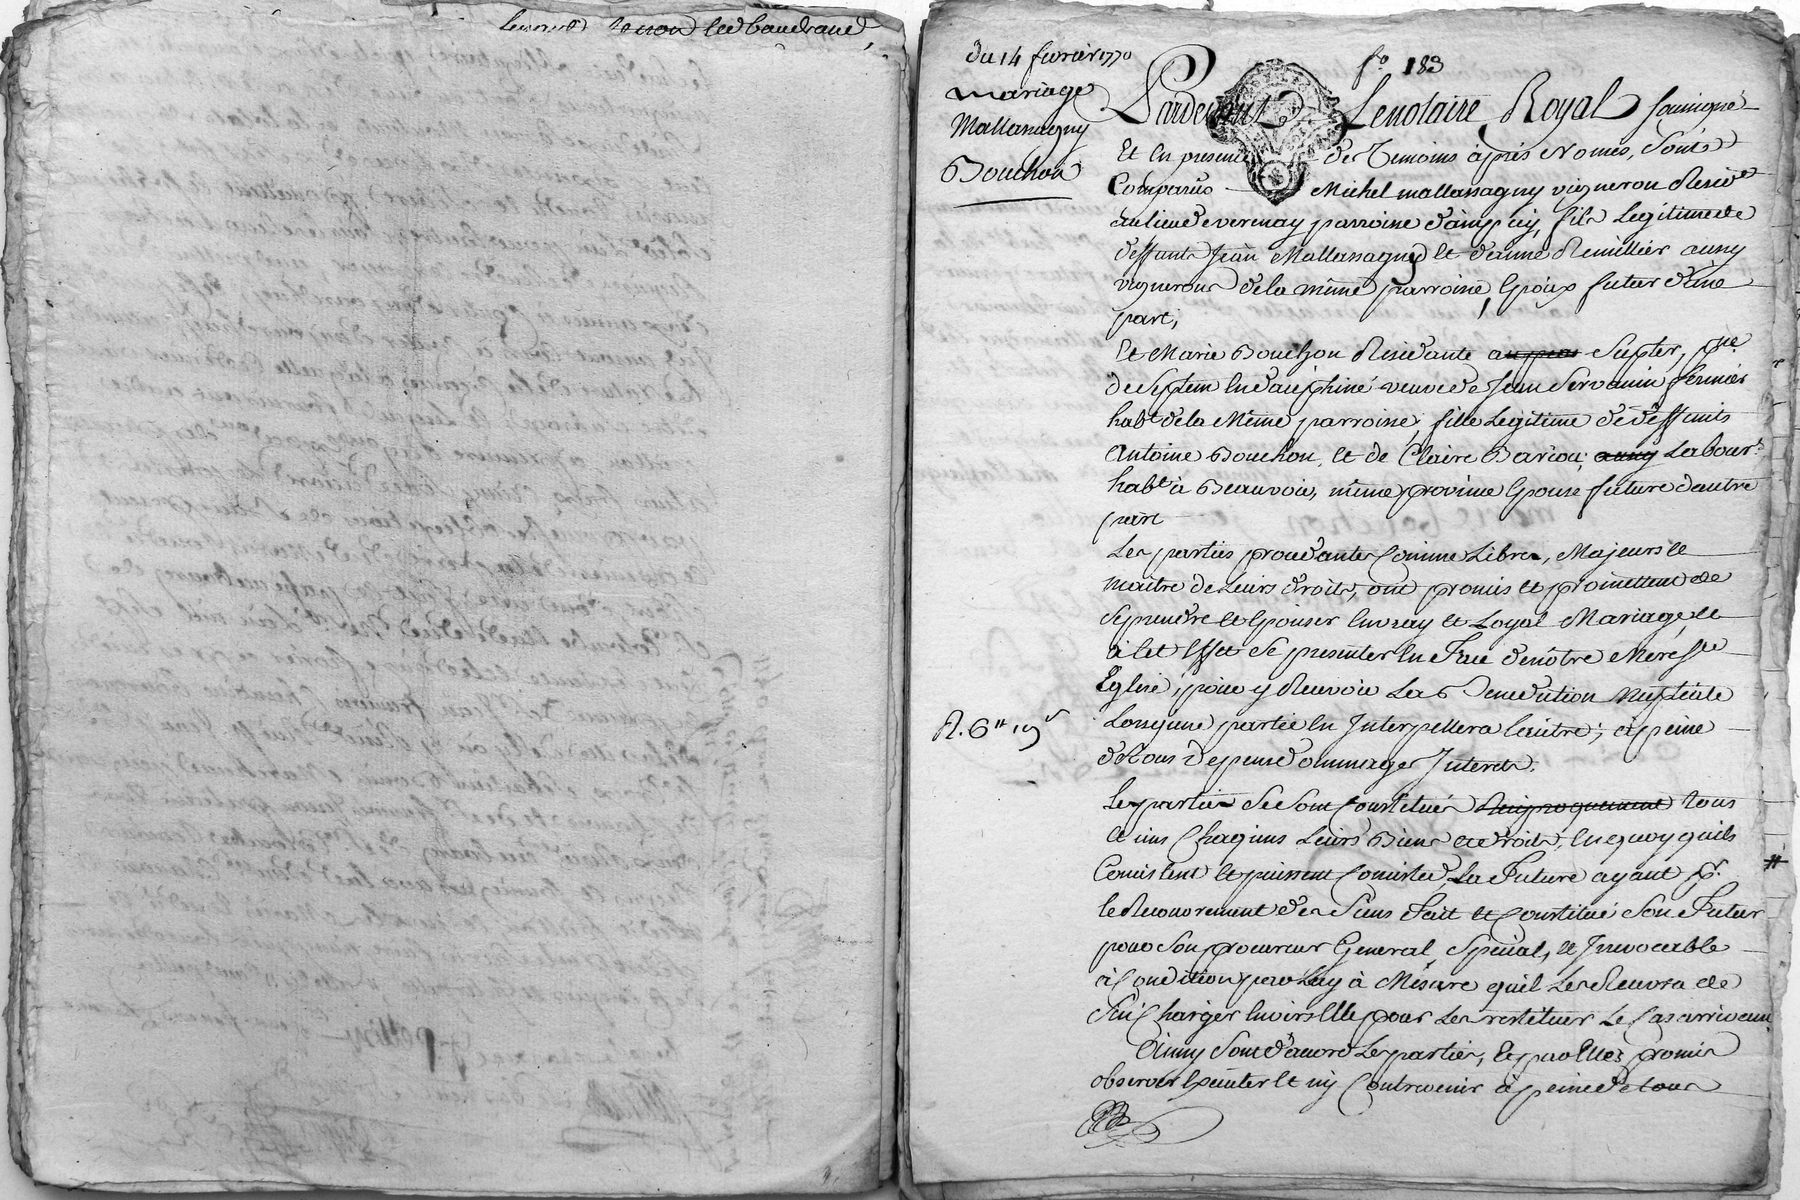 du 14 fevrier 1770
fo 183
mariage
Mallassagny
Bouchon
Pardevant Le notaire Royal soussigné
Et En presence des Temoins après Només, sont
Comparus Michel mallassagny vigneron Reside
au lieu de verenay parroisse d'ampuy, fils Legitime de
deffunts Jean Mallassagny et d'anne Remillier aussy
vignerons de la même parroisse, Epoux futur d'une
part;
Et Marie Bouchon Residante au pres Supter, pse
de Septem En dauphiné veuve de Jean Servanin fermier
habt de la Même parroisse, fille Legitime de deffunts
Antoine Bouchon, et de Claire Bariou, aussy Labours
habt à Beauvoir, même province Epouse future d'autre
part
Les parties procedantes Comme Libres, Majeurs et
maitre de Leurs droits, ont promis et promettent de
se prendre et Epouser En vray et Loyal Mariage, et
à Cet Effet se presenter En Face de nôtre Mere Ste
Eglise, pour y Recevoir La Benediction Nuptiale
Lorsqune partie En Interpellera L'autre; à peine
de tous depens dommages Interets.
R. 6tt 19s
Les parties se sont Constitués Reciproquement tous
et uns Chaquns Leurs Biens et droits, En quoy quils
Consistent et puissent Consister, La Future ayant pr.
le Recouvrement des siens Fait et Constitué son Futur
pour son procureur General, Special, et Irrevocable
à Condition par Luy à Mesure quil Les Recevra de
s'en Charger Envers Elle pour Les restituer Le Cas arrivant
Ainsy sont d'accord Les parties, Et par Elles promis
observer Executer Et ny Contrevenir à peine de tous